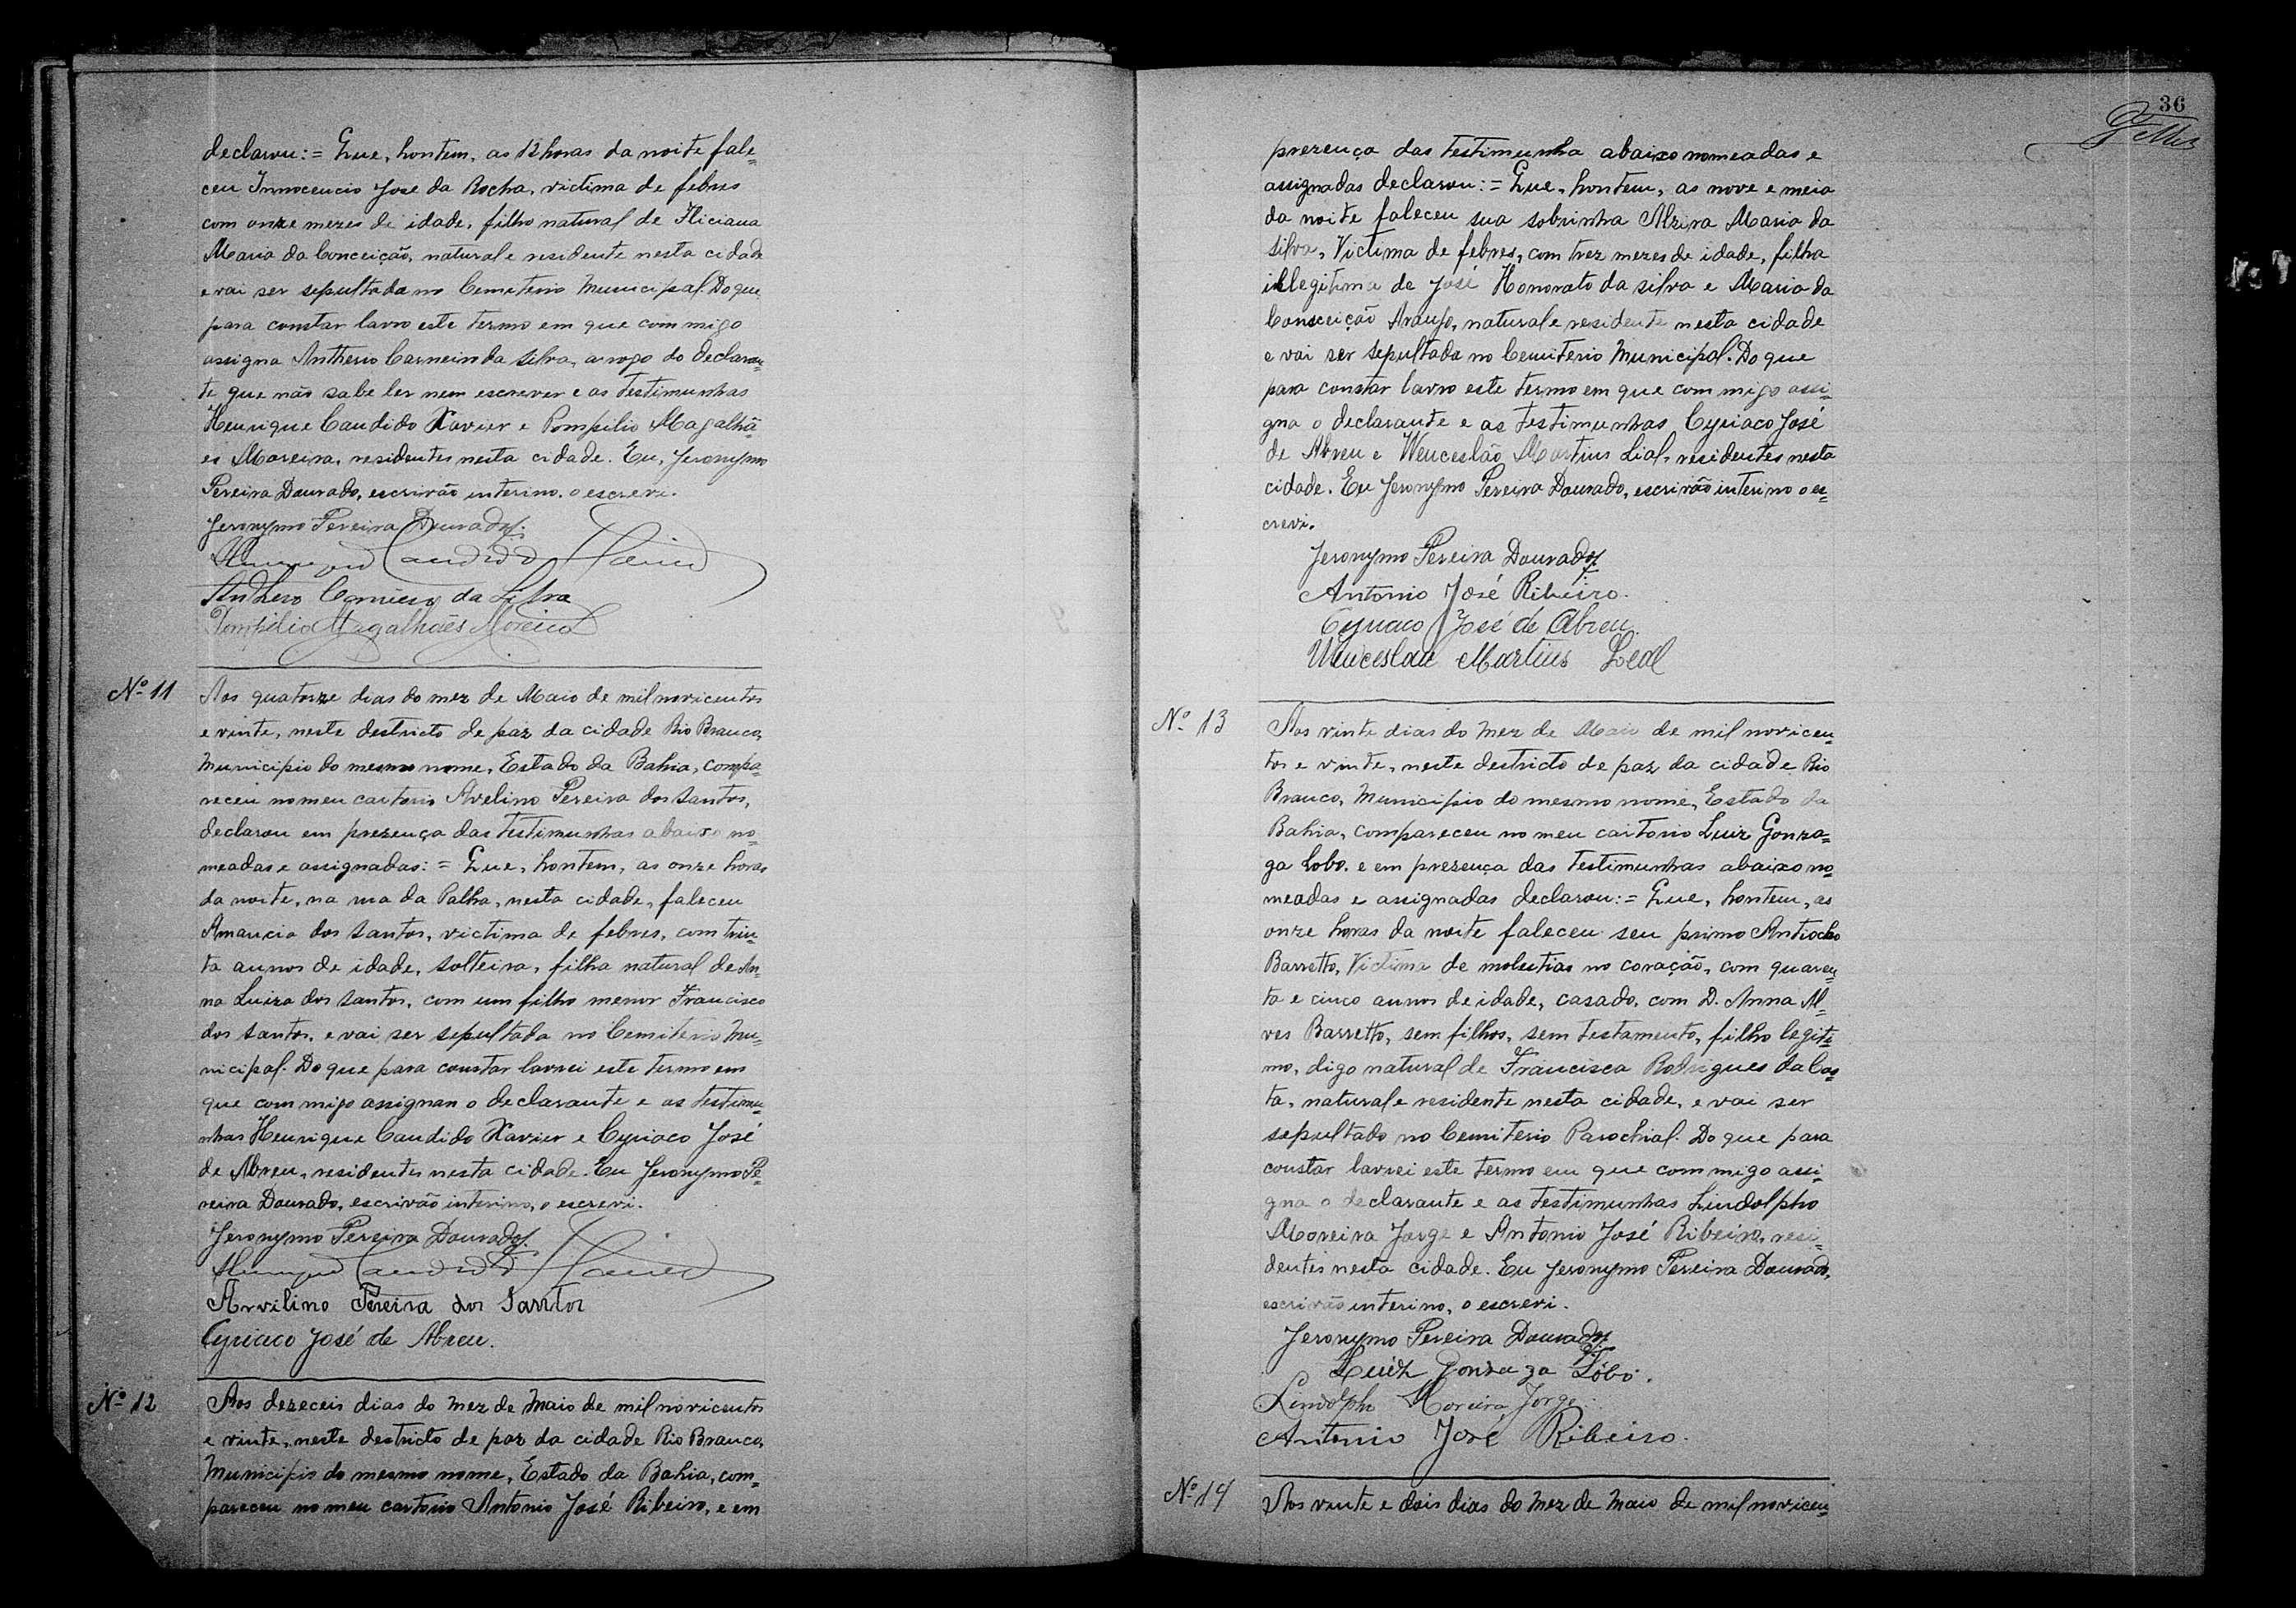 declarou:= Que, hontem, as 12 horas da noite fale=
ceu Innocencio José da Rocha, victima de febres
com onze mezes de idade, filho natural de Feliciana
Maria da Conceição, natural e residente nesta cidade
e vai ser sepultada no Cemiterio Municipal. Do que,
para constar lavro este termo em que commigo
assigna Anthero Carneiro da Silva, a rogo do declaran=
te que não sabe ler nem escrever e as testimunhas
Henrique Candido Xavier e Pompilio Magalhã=
es Moreira, residentes nesta cidade. Eu, Jeronymo
Pereira Dourado, escrivão interino, o escrevi.
Jeronymo Pereira Dourado.
Henrique Candido Xavier
Anthero Carneiro da Silva
Pompilio Magalhães Moreira
Nº 11
Aos quatorze dias do mez de Maio de mil novicentos
e vinte, neste destricto de paz da cidade Rio Branco,
Municipio do mesmo nome, Estado da Bahia, compa=
receu no meu cartorio Avelino Pereira dos Santos,
declarou em prezença das testimunhas abaixo no=
meadas e assignadas: = Que, hontem, as onze horas
da noite, na rua da Palha, nesta cidade, faleceu
Amancia dos Santos, victima de febres, com trin=
ta annos de idade, solteira, filha natural de An=
na Luiza dos Santos, com um filho menor Francisco
dos Santos, e vai ser sepultada no Cemiterio Mu=
nicipal. Do que para constar lavrei este termo em
que commigo assignan o declarante e as testimu=
nhas Henrique Candido Xavier e Cyriaco José
de Abreu, residentes nesta cidade. Eu Jeronymo Pe=
reira Dourado, escrivão interino, o escrevi.
Jeronymo Pereira Dourado.
Henrique Candido Xavier
Arvilino Pereira dos Santos
Cyriaco José de Abreu.
Nº 12
Aos dezeceis dias do mez de maio de mil novicentos
e vinte, neste destricto de paz da cidade Rio Branco,
Municipio do mesmo nome, Estado da Bahia, com=
pareceu no meu cartorio Antonio José Ribeiro, e em
36
prezença das testimunha abaixo nomeadas e
assignadas declarou: = Que, hontem, as nove e meia
da noite faleceu sua sobrinha Alzira Maria da
Silva, Victima de febres, com trez mezes de idade, filha
illegitima de José Honorato da Silva e Maria da
Consceição Araujo, natural e residente nesta cidade
e vai ser sepultada no Cemiterio Municipal. Do que
para constar lavro este termo em que commigo assi=
gna o declarante e as testimunhas Cyriaco José
de Abreu e Wenceslão Martins Lial, residentes nesta
cidade. Eu Jeronymo Pereira Dourado, escrivão interino o es=
crevi.
Jeronymo Pereira Dourado.
Antonio José Ribeiro.
Cyriaco José de Abreu.
Wenceslau Martins Leal
Nº 13
Aos vinte dias do mez de Maio de mil novicen=
tos e vinte, neste destricto de paz da cidade Rio
Branco, Municipio do mesmo nome, Estado da
Bahia, compareceu no meu cartorio Luiz Gonza=
ga Lobo, e em prezença das testimunhas abaixo no=
meadas e assignadas declarou: = Que, hontem, as
onze horas da noite faleceu seu primo Antiocho
Barretto, Victima de molestias no coração, com quaren=
ta e cinco annos de idade, casado, com D. Anna Al=
ves Barretto, sem filhos, sem testamento, filho legiti=
mo, digo natural de Francisca Rodrigues da Cos=
ta, natural e residente nesta cidade, e vai ser
sepultado no Cemiterio Parochial. Do que para
constar lavrei este termo em que commigo assi=
gna o declarante e as testimunhas Lindolpho
Moreira Jorge e Antonio José Ribeiro, resi=
dentes nesta cidade. Eu Jeronymo Pereira Dourado,
escrivão interino, o escrevi.
Jeronymo Pereira Dourado.
Luiz Gonzaga Lôbo.
Lindolpho Moreira Jorge.
Antonio José Ribeiro.
Nº 14
Aos vinte e dois dias do mez de maio de mil novicen=